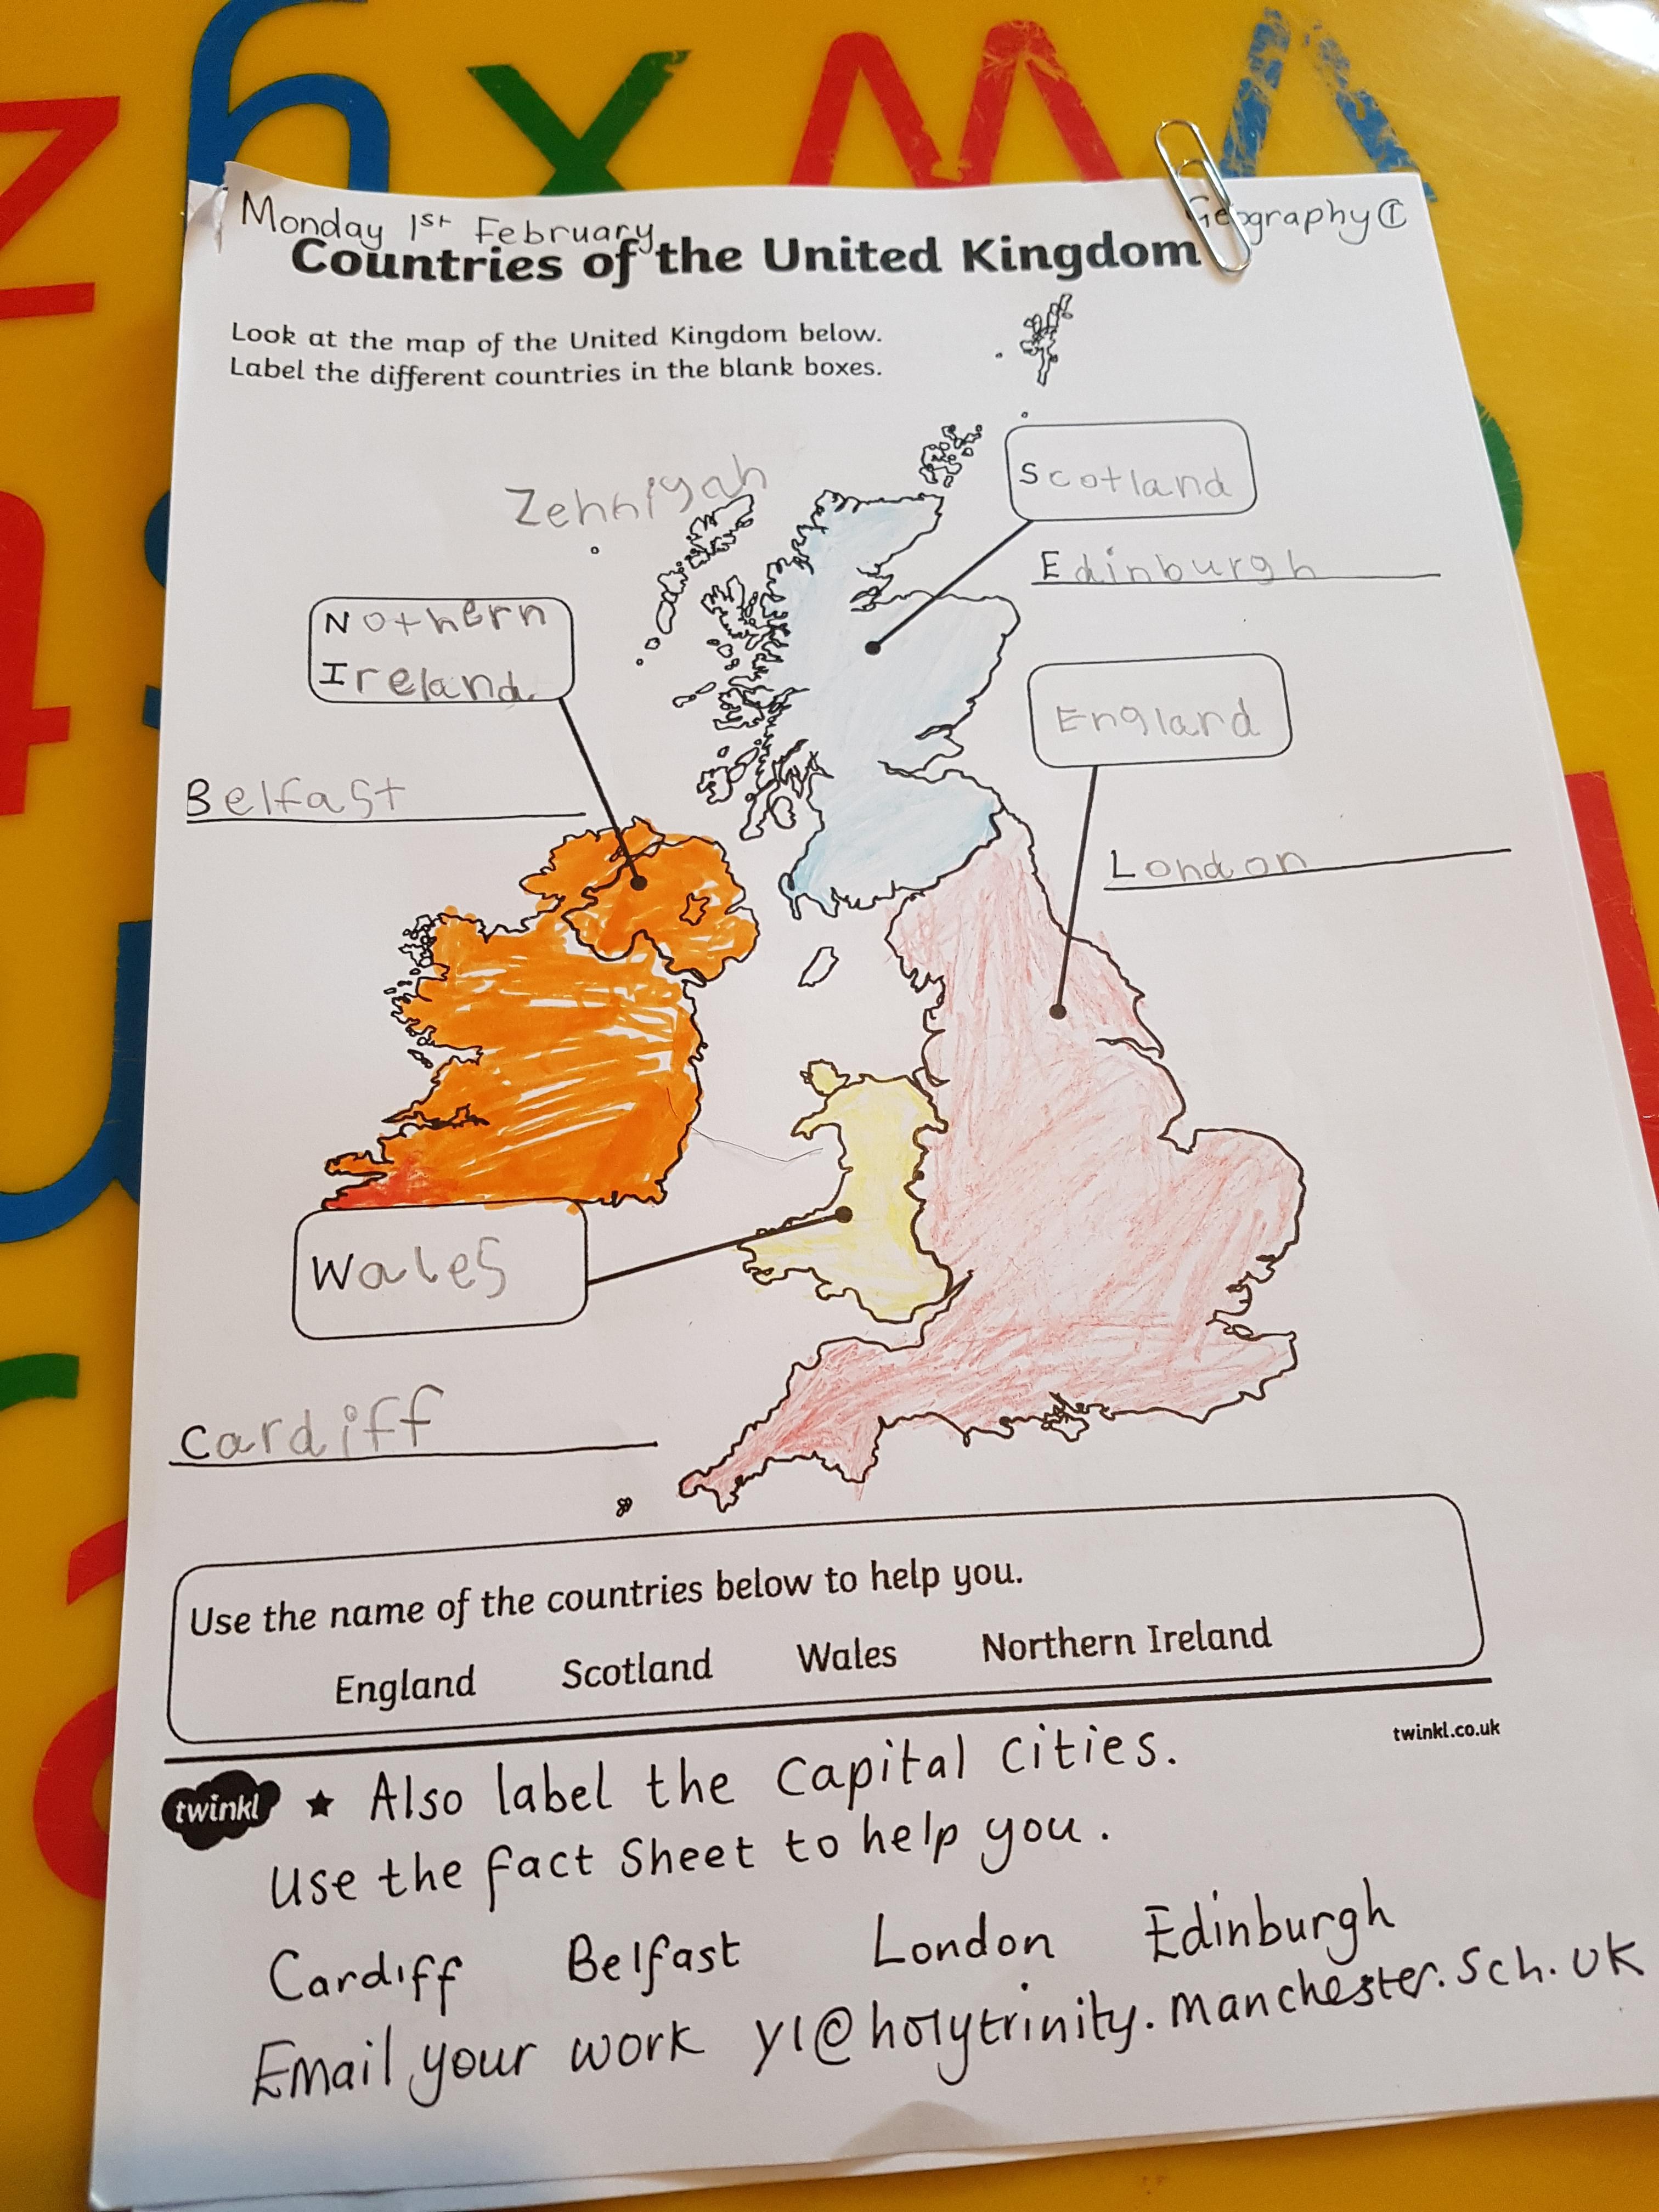 Monday 1st February
Geography ①
Countries of the United Kingdom
Look at the map of the United Kingdom below.
Label the different countries in the blank boxes.
Zehniyah
Scotland
Edinburgh
Nothern
Ireland
England
Belfast
London
Wales
Cardiff
Use the name of the countries below to help you.
England Scotland Wales Northern Ireland
twinkl.co.uk
twinkl ★ Also label the capital cities.
Use the fact sheet to help you.
Cardiff Belfast London Edinburgh
Email your work y1@holytrinity.manchester.sch.uk